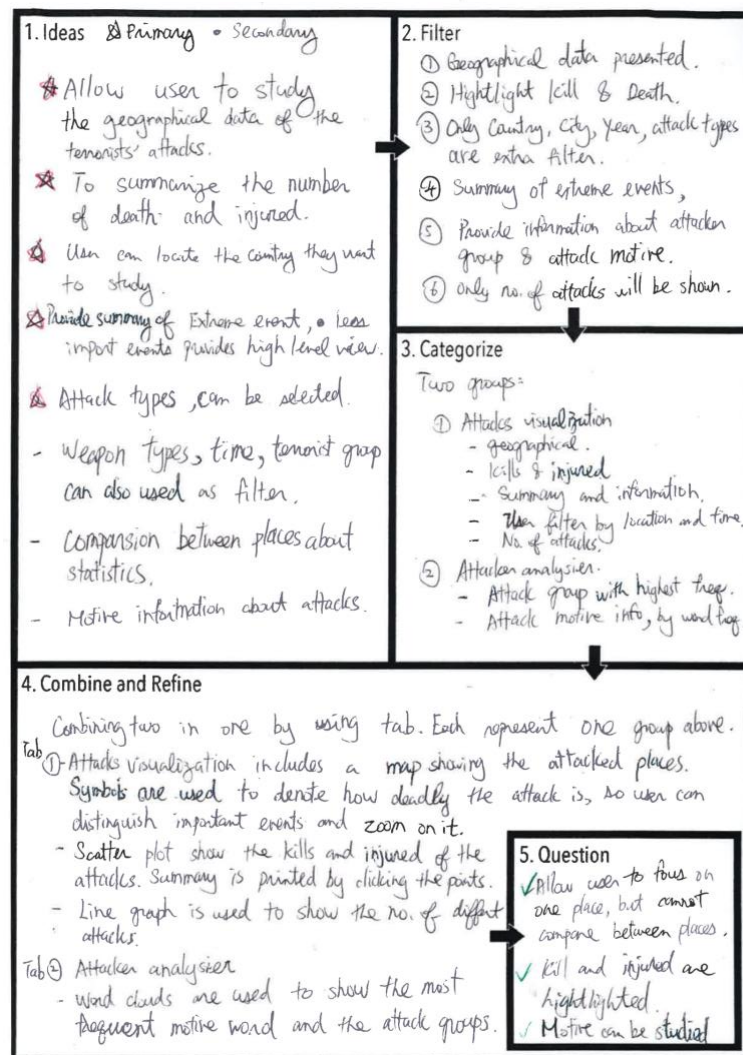 1. Ideas ☆ Primary • Secondary
☆ Allow user to study
the geographical data of the
terrorists' attacks.
☆ To summarize the number
of death and injured.
☆ User can locate the country they want
to study.
☆ Provide summary of Extreme event, • Less
import events provides high level view.
☆ Attack types, can be selected.
- Weapon types, time, terrorist group
can also used as filter.
- Comparsion between places about
statistics.
- Motive information about attacks.
2. Filter
① Geographical data presented.
② Hightlight kill & Death.
③ Only Country, City, Year, attack types
are extra filter.
④ Summary of extreme events,
⑤ Provide information about attacker
group & attack motive.
⑥ Only no. of attacks will be shown.
3. Categorize
Two groups:
① Attacks visualization
- geographical.
- Kills & injured
- Summary and information.
- User filter by location and time,
- No. of attacks.
② Attacker analysier.
- Attack group with highest freq.
- Attack motive info, by word freq
4. Combine and Refine
Combining two in one by using tab. Each represent one group above.
Tab ① - Attacks visualization includes a map showing the attacked places.
Symbols are used to denote how deadly the attack is, so user can
distinguish important events and zoom on it.
- Scatter plot show the kills and injured of the
attacks. Summary is printed by clicking the points.
- Line graph is used to show the no. of diffent
attacks.
Tab ② Attacker analysier
- Word clouds are used to show the most
frequent motive word and the attack groups.
5. Question
✓ Allow user to fous on
one place, but cannot
compare between places.
✓ Kill and injured are
hightlighted.
✓ Motive can be studied